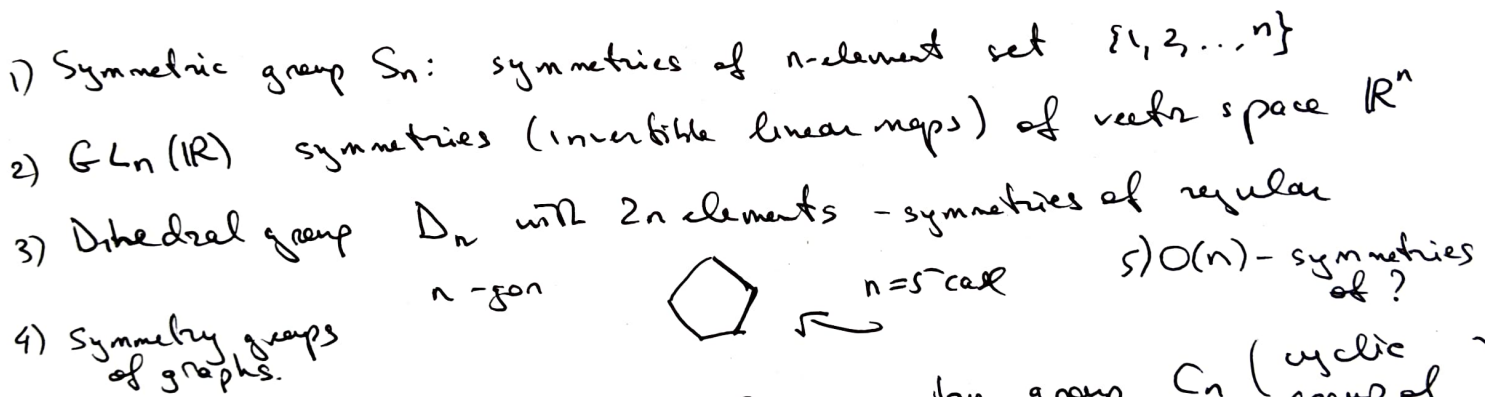 1) Symmetric group Sn: symmetries of n-element set {1, 2, ..., n}
2) GLn (ℝ) symmetries (invertible linear maps) of vector space ℝⁿ
3) Dihedral group Dn with 2n elements - symmetries of regular
n-gon
n=5 case
5) O(n) - symmetries
of ?
4) Symmetry groups
of graphs.
group Cn ( cyclic
group of